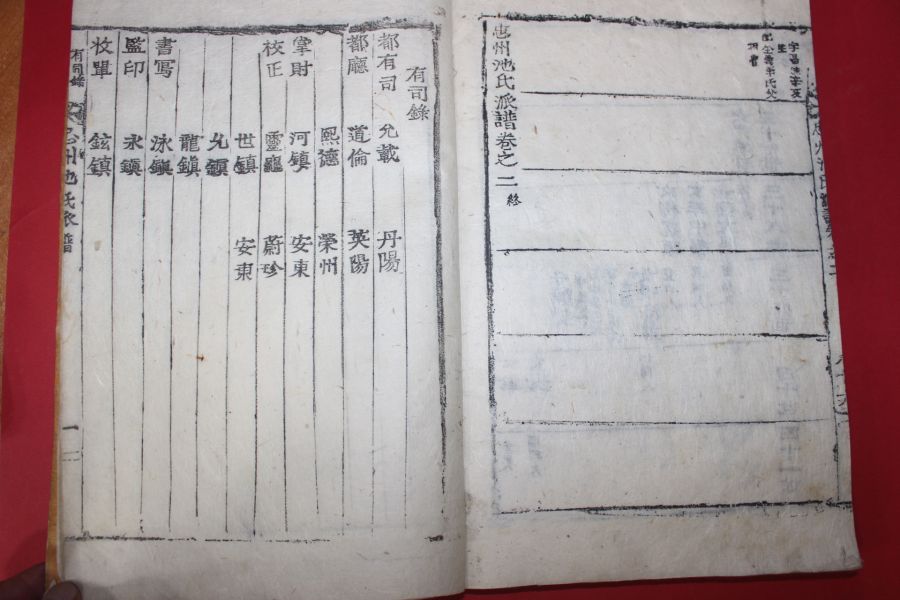 忠州池氏派譜卷之二 終
有司錄
都有司 允載 丹陽
都廳 道倫 英陽
熙德 榮州
掌財 河鎮 安東
校正 靈龜 蔚珍
世鎮 安東
允鎮
龍鎮
書寫 泳鎮
監印 永鎮
收單 鉉鎮
有司錄
忠州池氏派譜
一